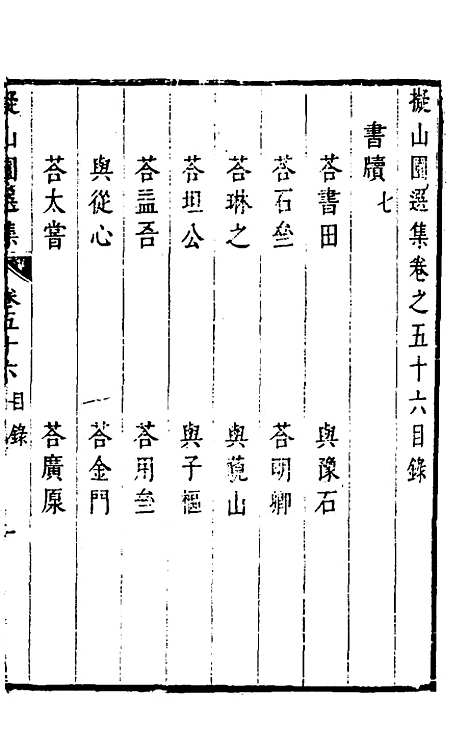 擬山園選集卷之五十六目錄
書牘七
荅書田　與豫石
荅石壘　荅明卿
荅琳之　與蒬山
荅坦公　與子樞
荅盂吾　荅用壘
與從心　荅金門
荅太嘗　荅廣原
擬山園選集　卷五十六　目錄　一